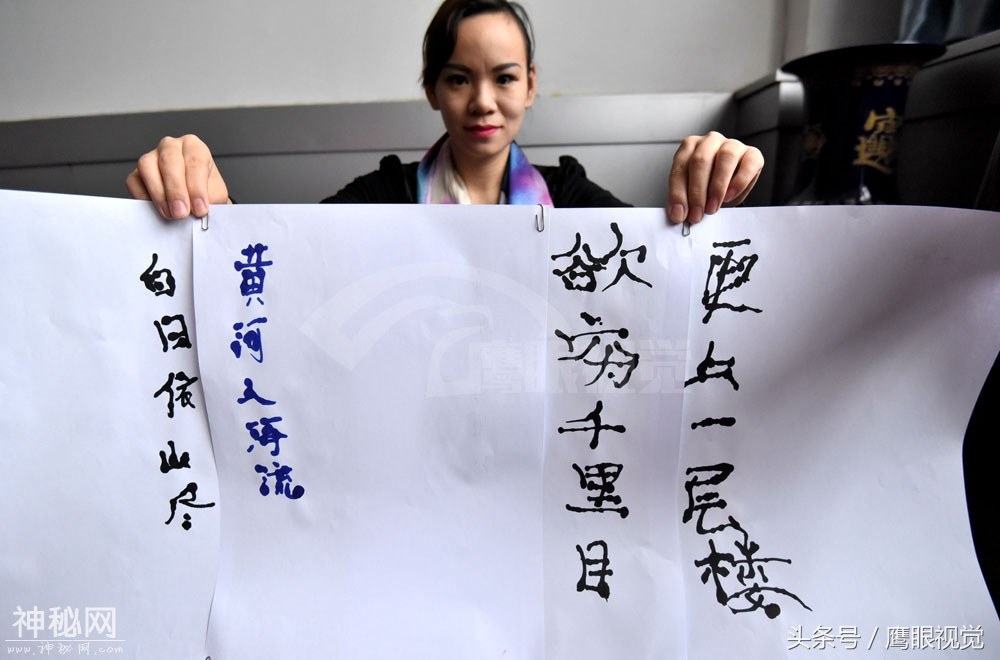 白日依山尽
黄河入海流
欲穷千里目
更上一层楼
鹰眼视觉
神秘网
www.神秘网.com
头条号 / 鹰眼视觉